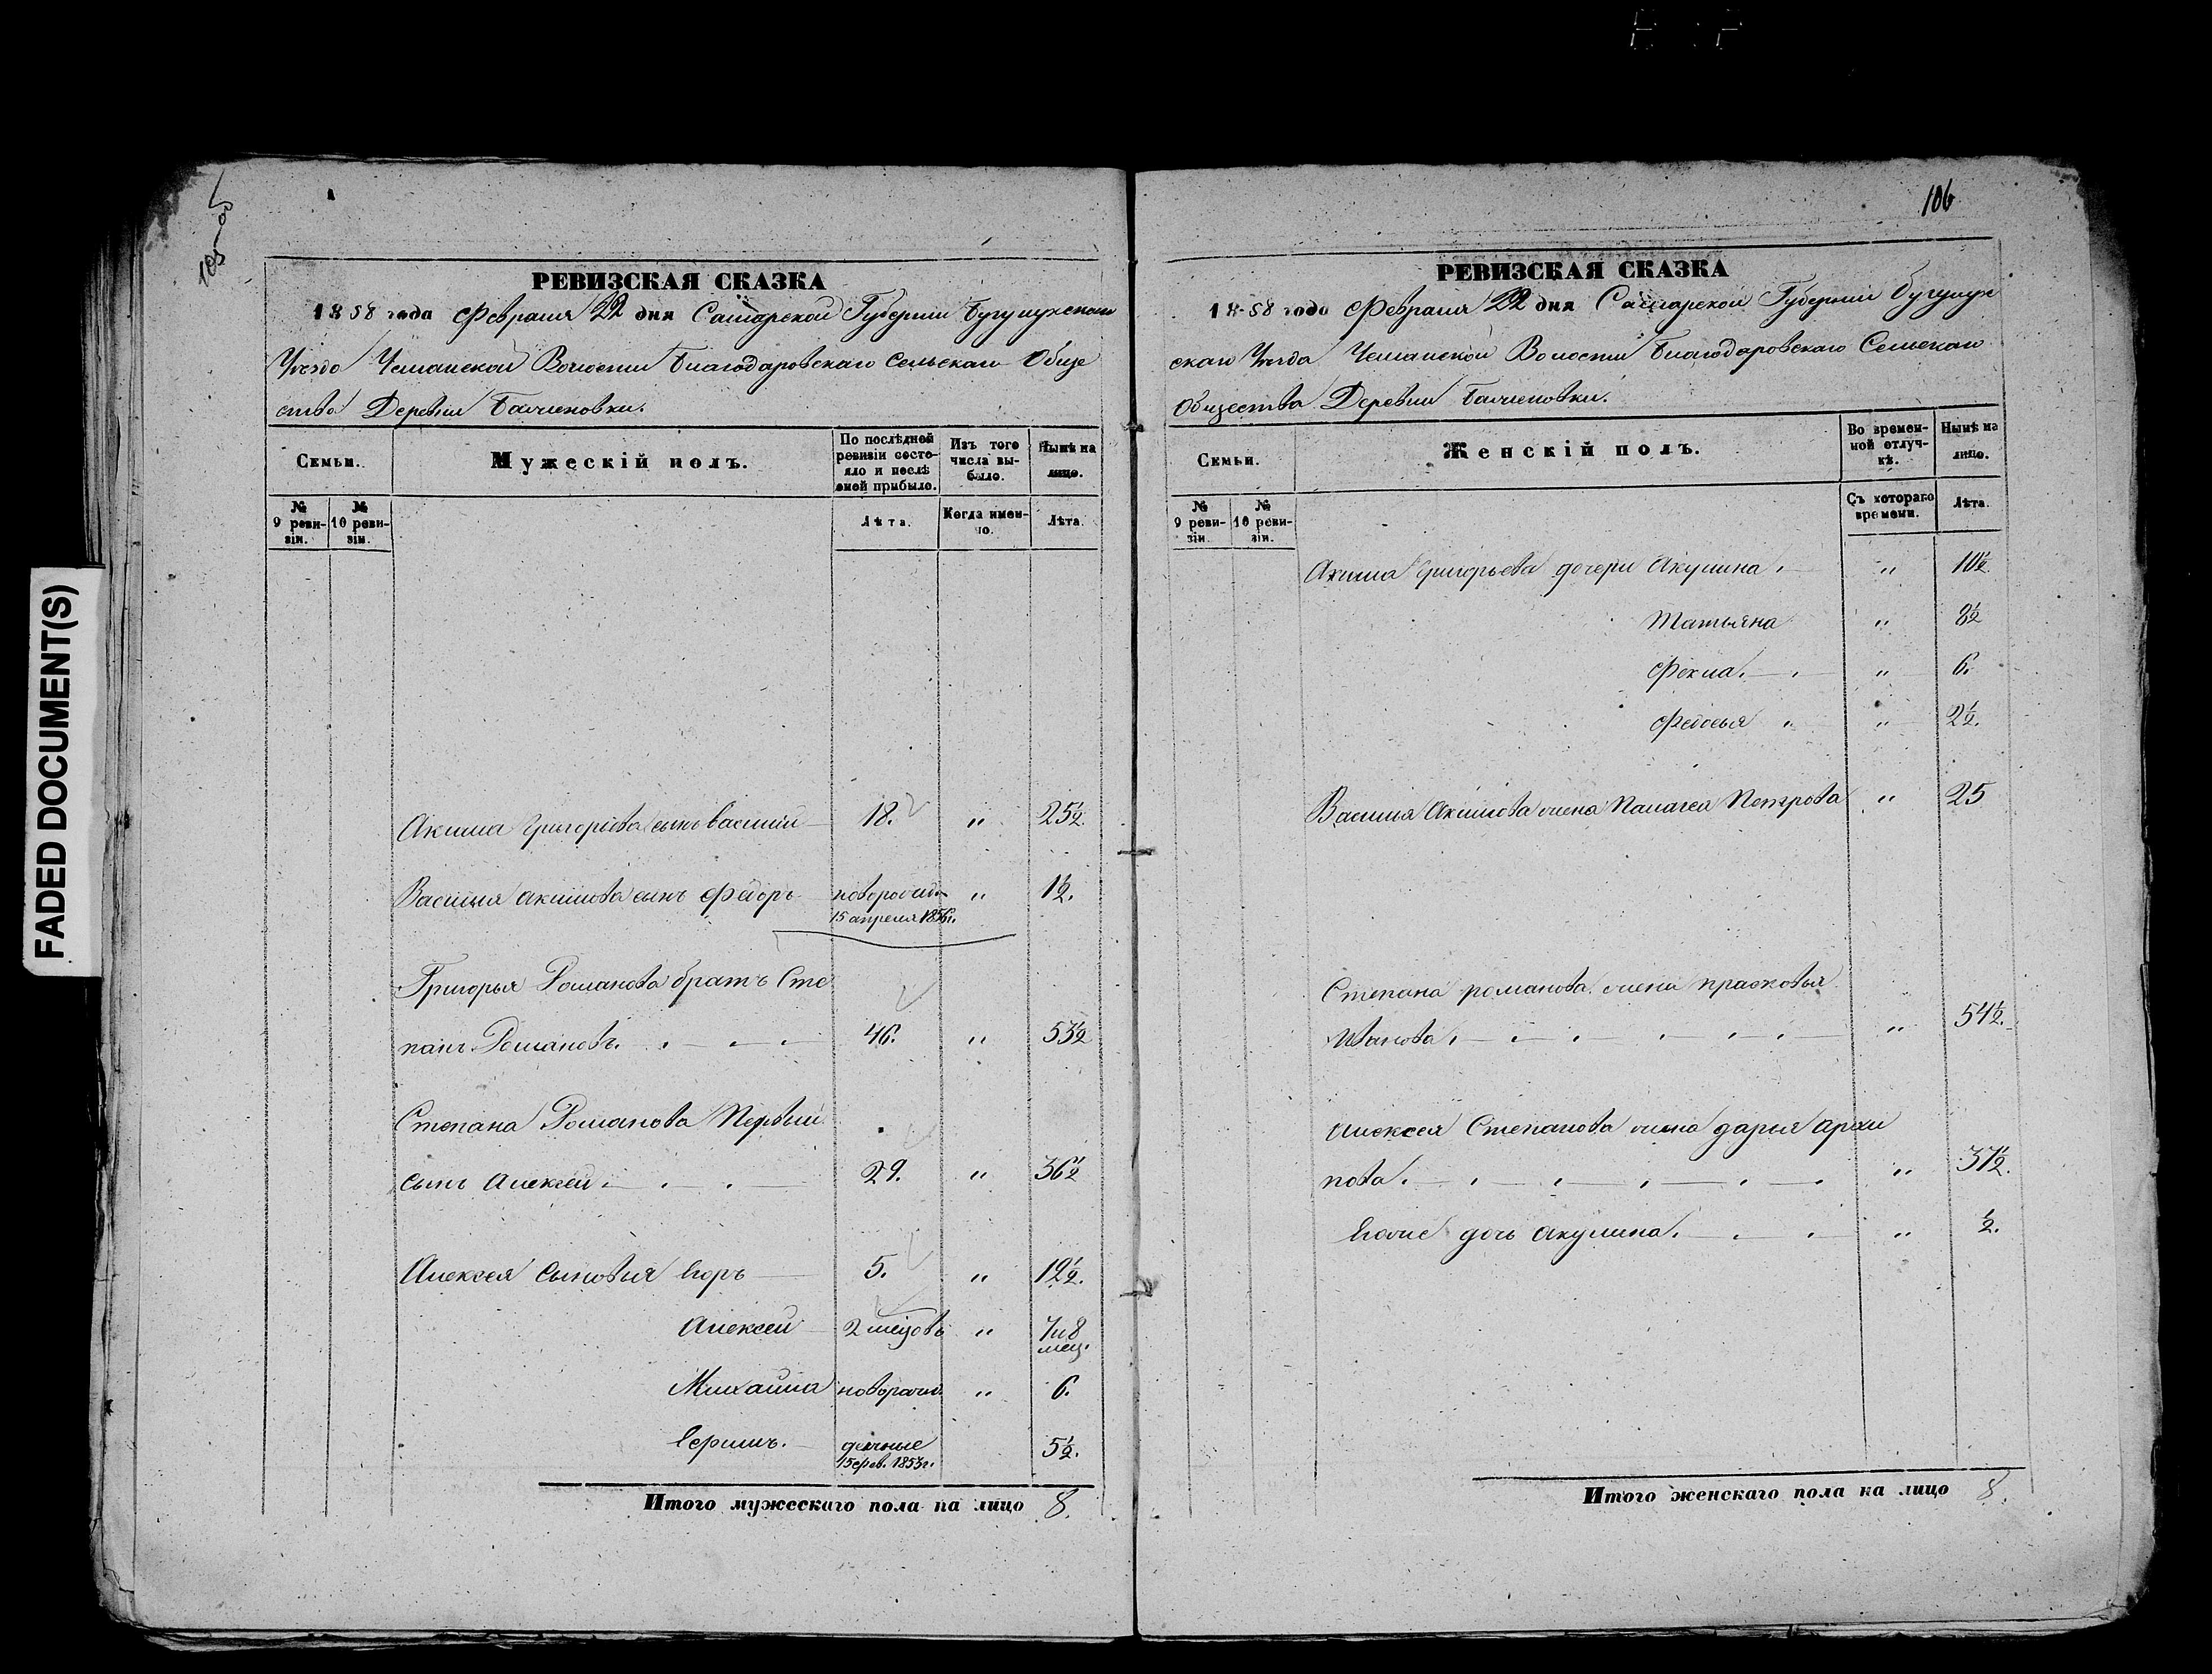 FADED DOCUMENT(S)
105
РЕВИЗСКАЯ СКАЗКА
1858 года Февраля 22 дня Самарской Губернии Бугульминского
Уезда Волости Благодаровскаго Сельскаго Обще
ства Деревни
Семьи.
Мужескій полъ.
По послѣдней ревизіи состояло и послѣ оной прибыло.
Изъ того числа выбыло.
Нынѣ на лицо.
№ 9 ревизіи.
№ 10 ревизіи.
Лѣта.
Когда именно.
Лѣта.
Акима Григорьева сынъ Василий 18. " 25½
Василья Акимова сынъ Федоръ новорожд. " 1½.
15 апреля 1856г.
Григорья Романова братъ Сте
панъ Романовъ. 46. " 53½
Степана Романова Первый
сынъ Алексей 29. " 36½
Алексея Сыновья Егоръ 5. " 12½.
Алексей 2 месцовъ " 7 и 8 мец.
Михайла новорожд. " 6.
денные 5½.
15 фев. 1853г.
Итого мужескаго пола на лицо 8.
106
РЕВИЗСКАЯ СКАЗКА
1858 года Февраля 22 дня Самарской Губернии
скаго Уезда Волости Благодаровскаго Сельскаго
Общества Деревни
Семьи.
Женскій полъ.
Во временной отлучкѣ.
Нынѣ на лицо.
№ 9 ревизіи.
№ 10 ревизіи.
Съ котораго времени.
Лѣта.
Акима Григорьева дочери Акулина. " 10½
Татьяна " 8½
Фекла. " 6.
Федосья " 2½.
Василья Акимова жена Палагея Петрова " 25
Степана Романова жена Прасковья
Иванова. " 54½.
Алексея Степанова жена Дарья Архи
пова. " 37½.
Егоже дочь Акулина. " ½.
Итого женскаго пола на лицо 8.